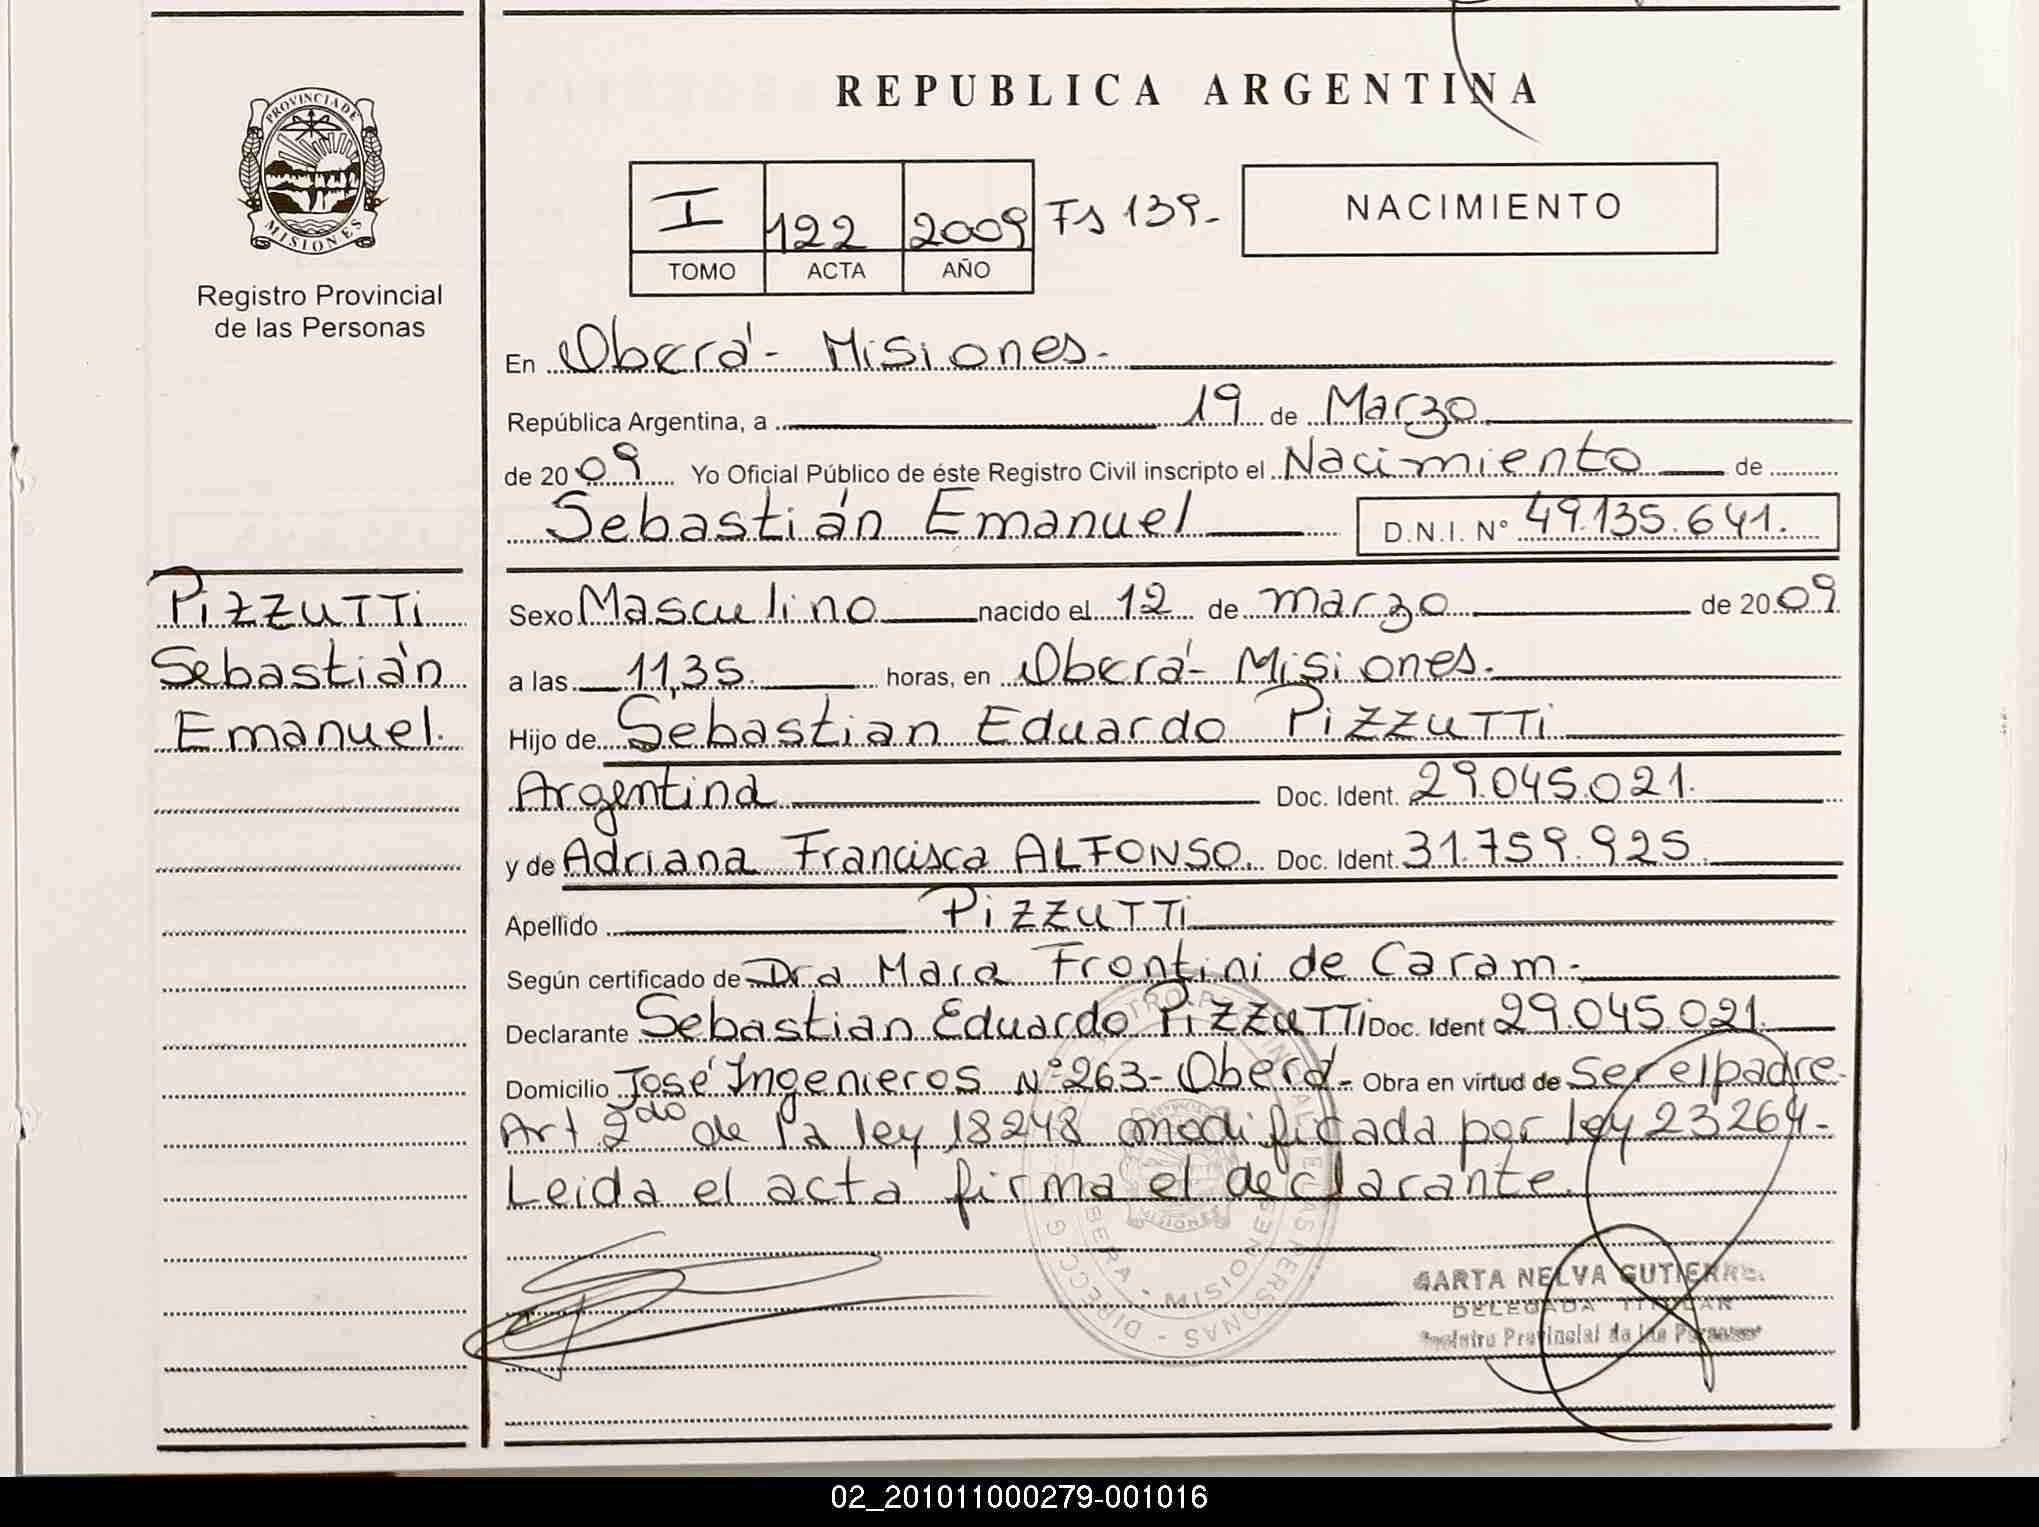 REPUBLICA ARGENTINA
PROVINCIA DE
MISIONES
Registro Provincial
de las Personas
I 122 2009 Fs 139-
TOMO ACTA AÑO
NACIMIENTO
En Oberá - Misiones.
República Argentina, a 19 de Marzo
de 2009 Yo Oficial Público de éste Registro Civil inscripto el Nacimiento de
Sebastián Emanuel D.N.I. N° 49.135.641.
PizzuTTi
Sebastián
Emanuel.
Sexo Masculino nacido el 12 de marzo de 2009
a las 11,35 horas, en Oberá - Misiones.
Hijo de Sebastian Eduardo PizzuTTi
Argentina Doc. Ident. 29.045.021.
y de Adriana Francisca ALFONSO. Doc. Ident. 31.759.925
Apellido PizzuTTi
Según certificado de Dra Mara Frontini de Caram.
Declarante Sebastian Eduardo PizzuTTi Doc. Ident 29.045.021.
Domicilio José Ingenieros N° 263 - Oberá - Obra en virtud de ser el padre.
Art 2do de la ley 18248 modificada por ley 23264 -
Leida el acta firma el declarante.
MISIONES
NELVA GUTIERREZ
DELEGADA TITULAR
Registro Provincial de las Personas
02_201011000279-001016